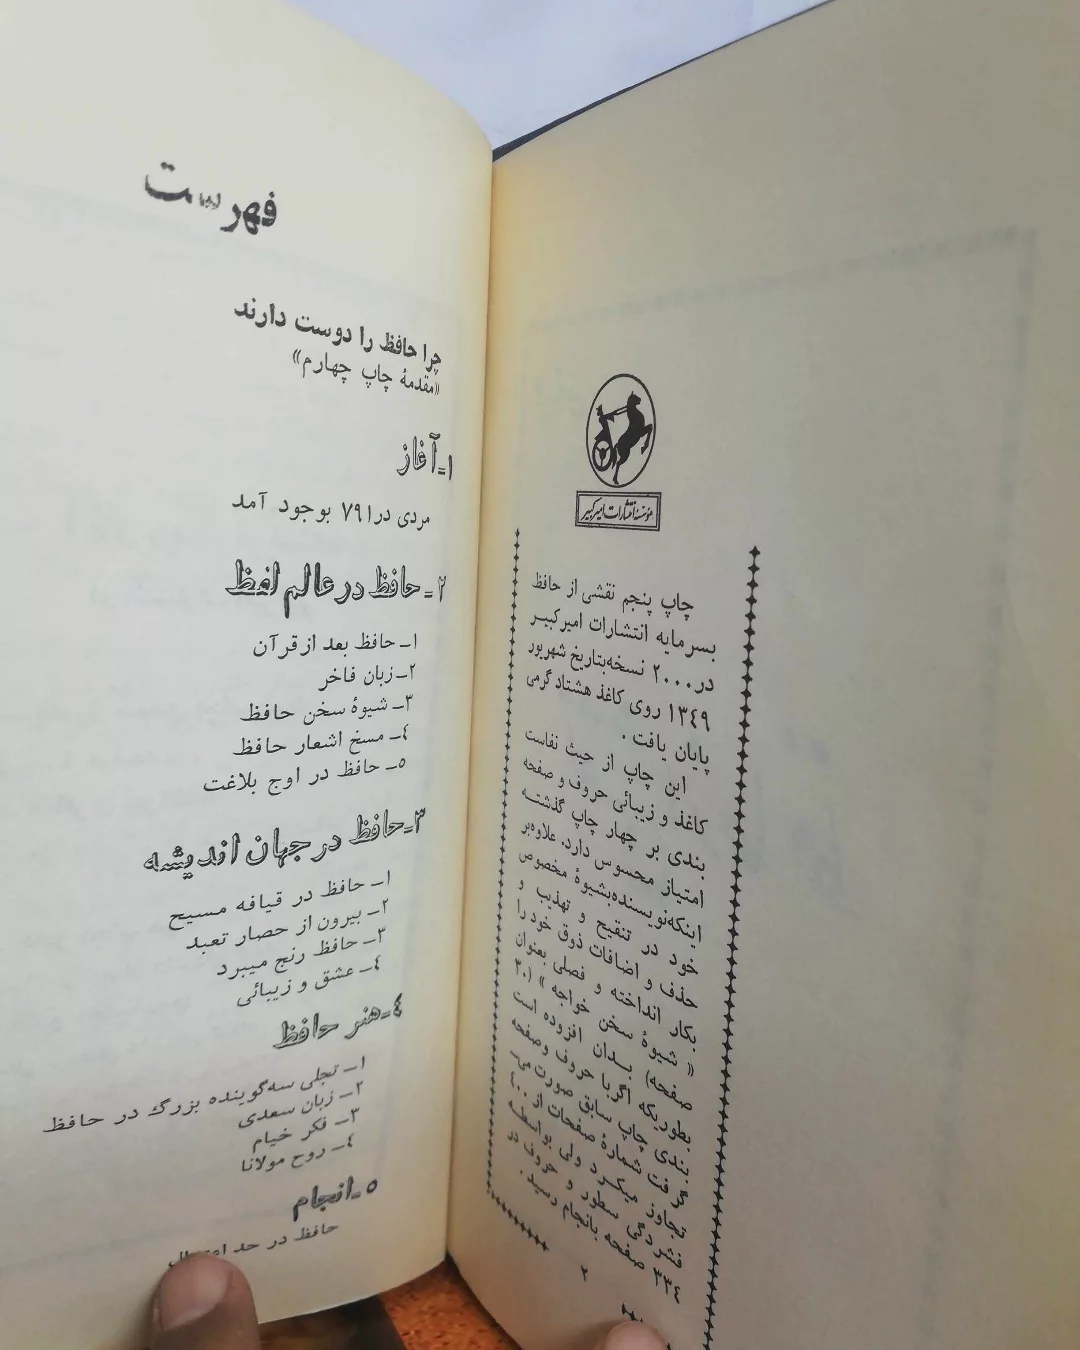 مؤسسهٔ انتشارات امیرکبیر
چاپ پنجم نقشی از حافظ
بسرمایه انتشارات امیرکبیر
در ۲۰۰۰ نسخه بتاریخ شهریور
۱۳۴۹ روی کاغذ هشتاد گرمی
پایان یافت .
این چاپ از حیث نفاست
کاغذ و زیبائی حروف و صفحه
بندی بر چهار چاپ گذشته
امتیاز محسوس دارد. علاوه بر
اینکه نویسنده بشیوهٔ مخصوص
خود در تنقیح و تهذیب و
حذف و اضافات ذوق خود را
بکار انداخته و فصلی بعنوان
« شیوهٔ سخن خواجه » (۳۰
صفحه) بدان افزوده است
بطوریکه اگر با حروف و صفحه
بندی چاپ سابق صورت می‌
گرفت شمارهٔ صفحات از ۴۰۰
تجاوز میکرد ولی بواسطه
فشردگی سطور و حروف در
۳۳۴ صفحه بانجام رسید .
۲
فهرست
چرا حافظ را دوست دارند
«مقدمهٔ چاپ چهارم»
۱ـ آغاز
مردی در ۷۹۱ بوجود آمد
۲ـ حافظ در عالم لفظ
۱ـ حافظ بعد از قرآن
۲ـ زبان فاخر
۳ـ شیوهٔ سخن حافظ
۴ـ مسخ اشعار حافظ
۵ـ حافظ در اوج بلاغت
۳ـ حافظ در جهان اندیشه
۱ـ حافظ در قیافه مسیح
۲ـ بیرون از حصار تعبد
۳ـ حافظ رنج میبرد
۴ـ عشق و زیبائی
۴ـ هنر حافظ
۱ـ تجلی سه گوینده بزرگ در حافظ
۲ـ زبان سعدی
۳ـ فکر خیام
۴ـ روح مولانا
۵ـ انجام
حافظ در حد